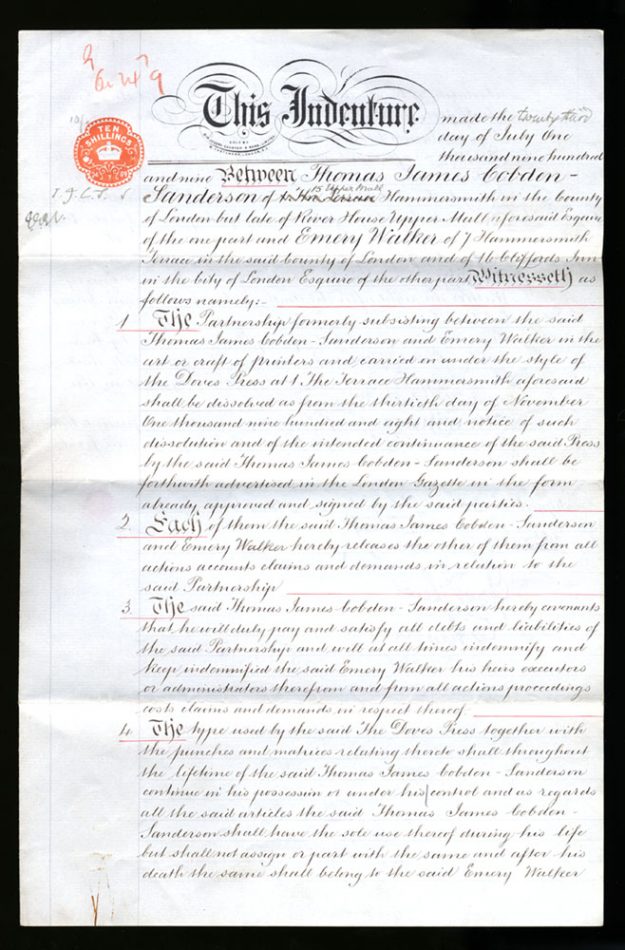 This Indenture
made the twenty third
day of July One
thousand nine hundred
TEN
SHILLINGS
and nine Between Thomas James Cobden-
15 Upper Mall
Sanderson of Hammersmith in the County
of London but late of River House Upper Mall aforesaid Esquire
of the one part and Emery Walker of 7 Hammersmith
Terrace in the said County of London and of 16 Cliffords Inn
in the City of London Esquire of the other part Witnesseth as
follows namely:-
1 The Partnership formerly subsisting between the said
Thomas James Cobden-Sanderson and Emery Walker in the
art or craft of printers and carried on under the style of
the Doves Press at 1 The Terrace Hammersmith aforesaid
shall be dissolved as from the thirtieth day of November
One thousand nine hundred and eight and notice of such
dissolution and of the intended continuance of the said Press
by the said Thomas James Cobden-Sanderson shall be
forthwith advertised in the London Gazette in the form
already approved and signed by the said parties.
2. Each of them the said Thomas James Cobden-Sanderson
and Emery Walker hereby releases the other of them from all
actions accounts claims and demands in relation to the
said Partnership
3. The said Thomas James Cobden-Sanderson hereby covenants
that he will duly pay and satisfy all debts and liabilities of
the said Partnership and will at all times indemnify and
keep indemnified the said Emery Walker his heirs executors
or administrators therefrom and from all actions proceedings
costs claims and demands in respect thereof
4. The type used by the said The Doves Press together with
the punches and matrices relating thereto shall throughout
the lifetime of the said Thomas James Cobden-Sanderson
continue in his possession or under his control and as regards
all the said articles the said Thomas James Cobden-
Sanderson shall have the sole use thereof during his life
but shall not assign or part with the same and after his
death the same shall belong to the said Emery Walker